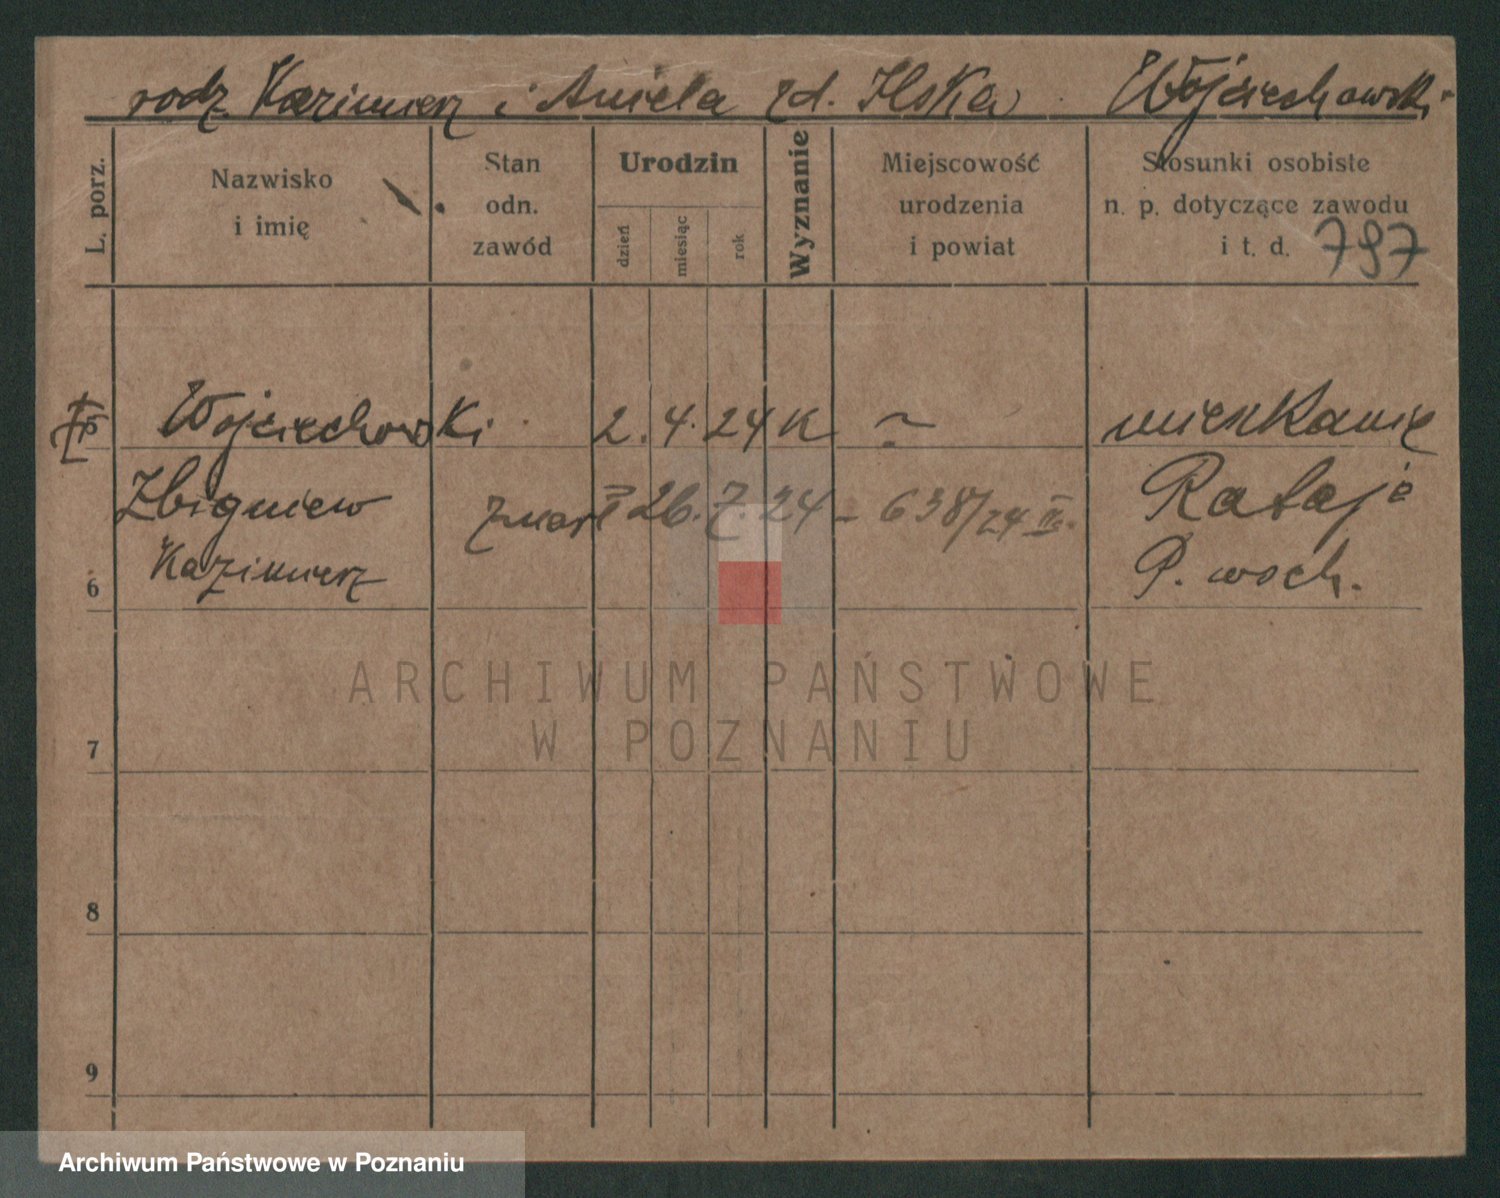 rodz. Kazimierz i Aniela zd. Ilska Wojciechowski
L. porz.
Nazwisko
i imię
Stan
odn.
zawód
Urodzin
dzień
miesiąc
rok
Wyznanie
Miejscowość
urodzenia
i powiat
Stosunki osobiste
n. p. dotyczące zawodu
i t. d. 797
5 Wojciechowski 2. 4. 24 K mieszkanie
Zbigniew zmarł 26. 7. 24 - 638/24 II. Rataje
Kazimierz P. wsch.
6
ARCHIWUM PAŃSTWOWE
W POZNANIU
7
8
9
Archiwum Państwowe w Poznaniu